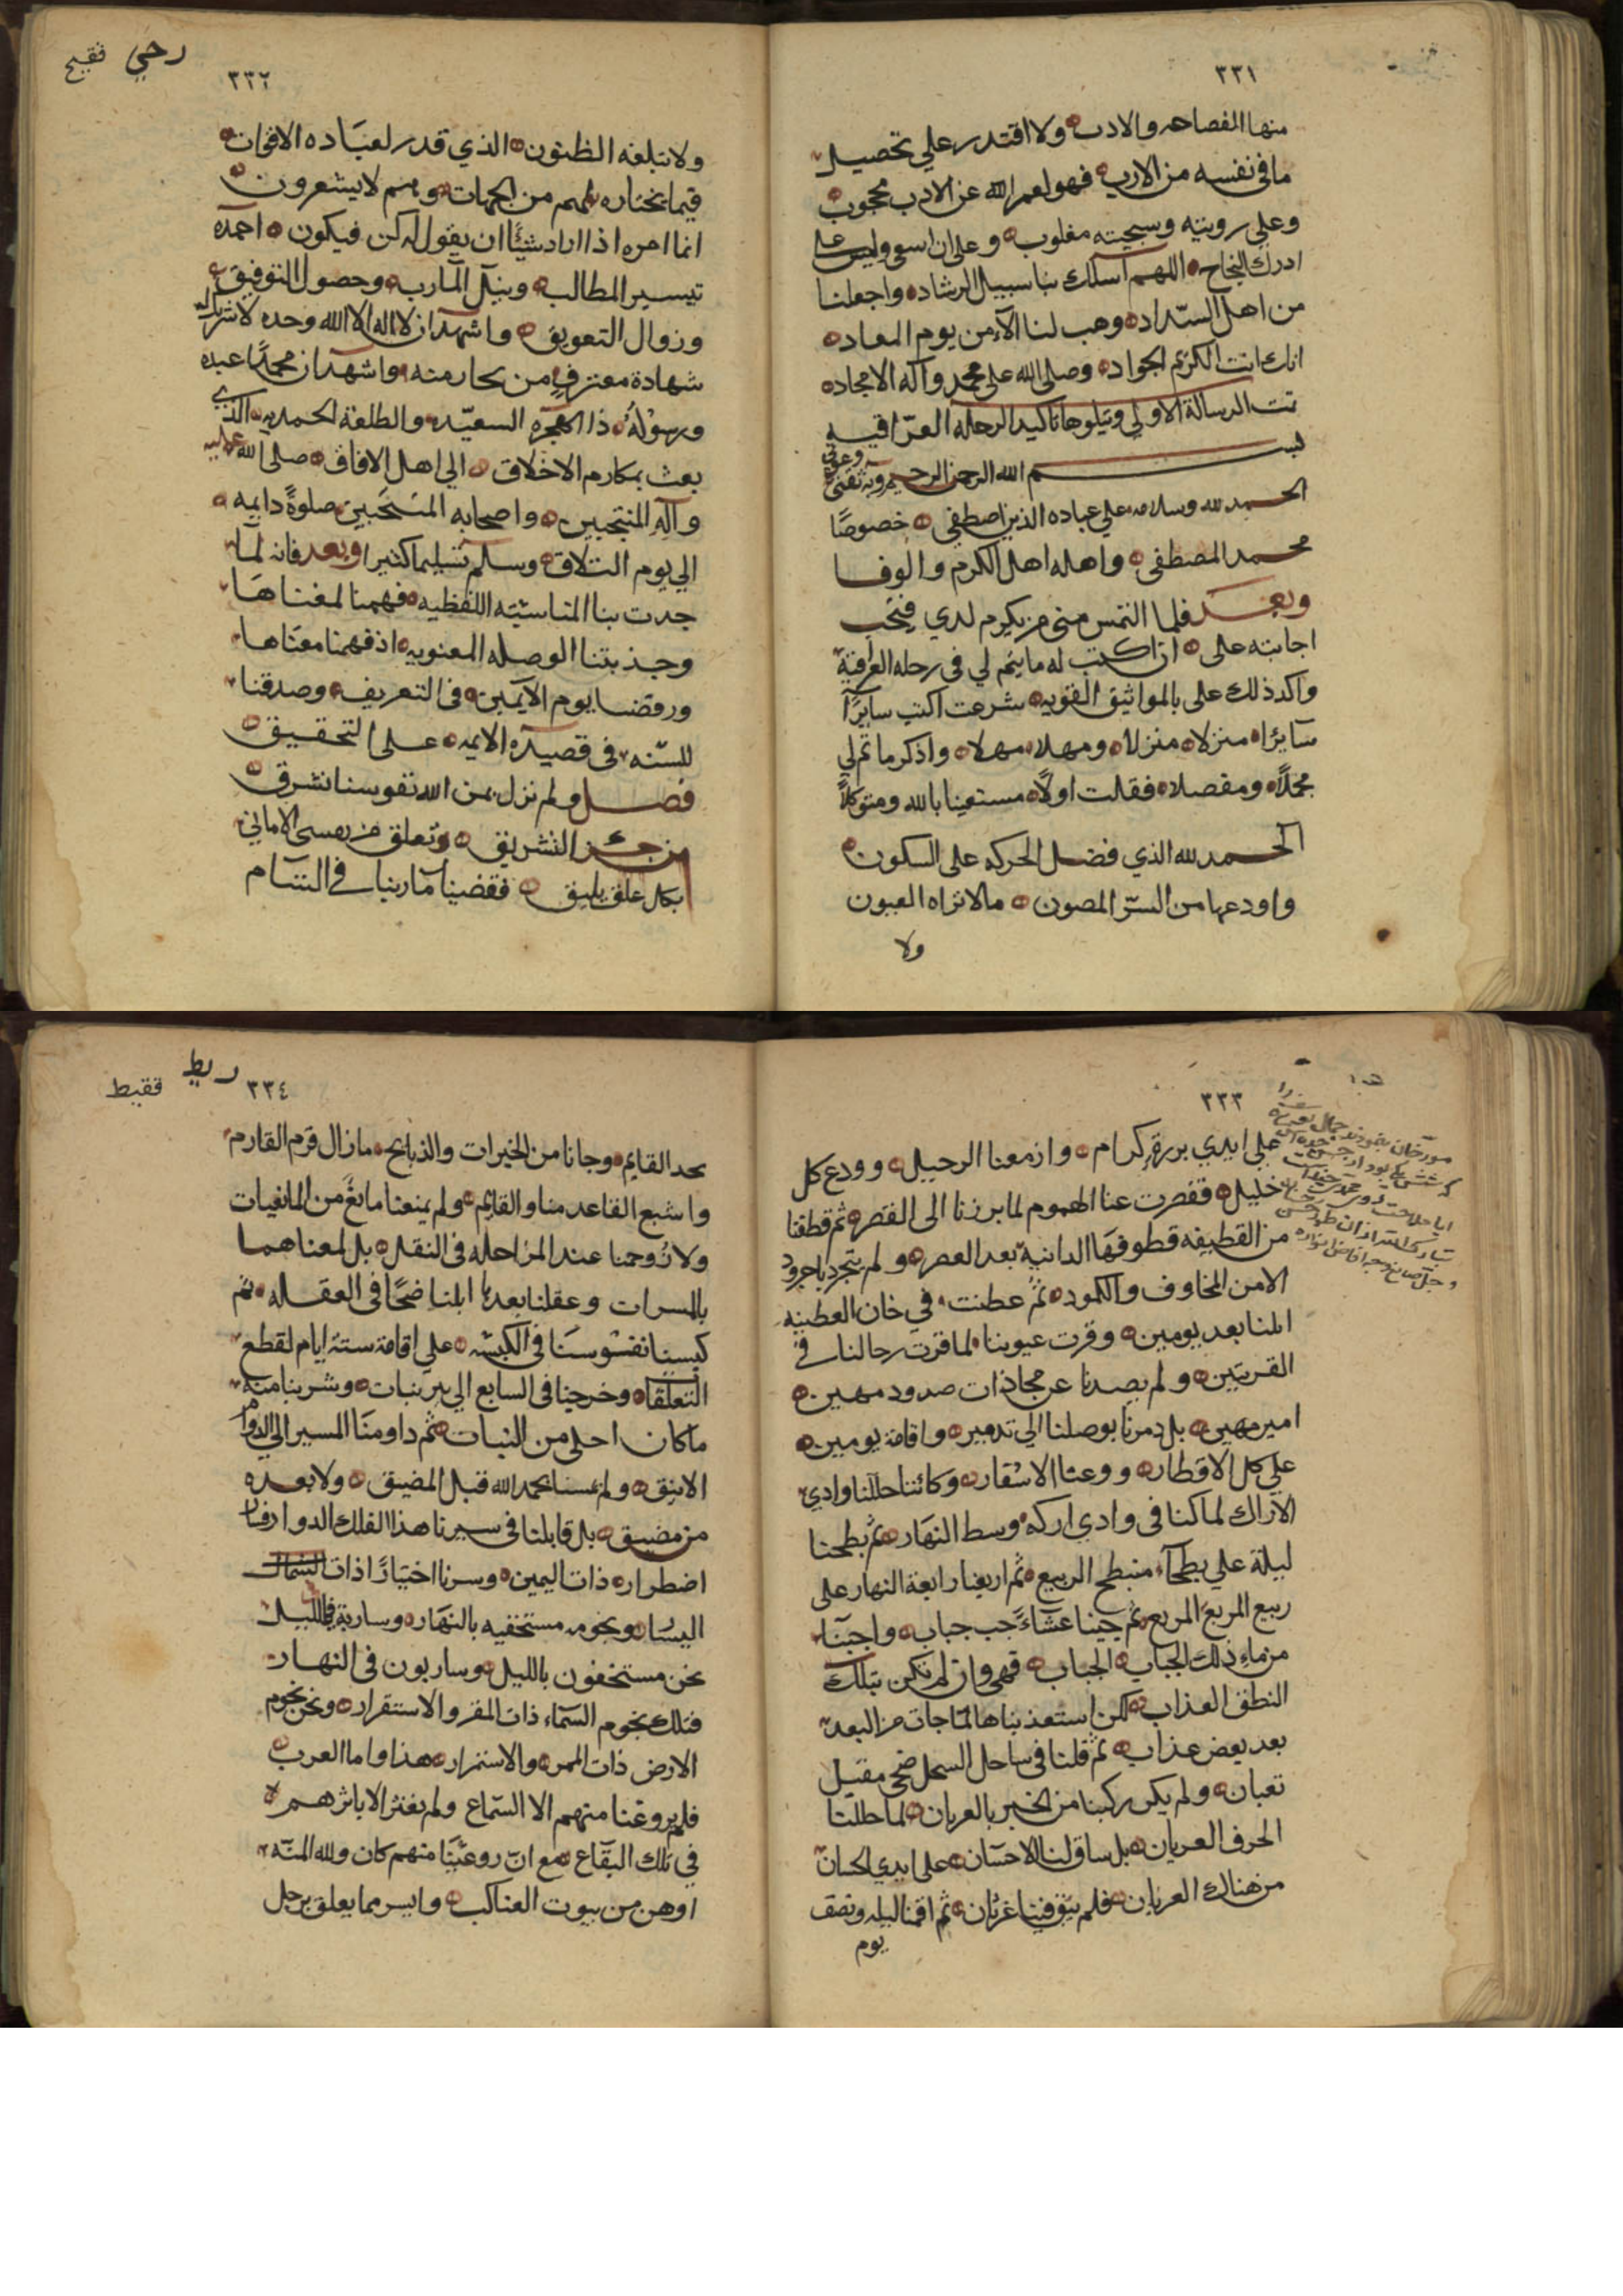 ٣٣١
منها الفصاحه والادب ولا اقتدر علي تحصيل
ما في نفسه من الارب فهو لعمر الله عن الادب محجوب
وعلي رويته وسجيته مغلوب وعلي ان اسعي وليس علي
ادراك النجاح اللهم اسلك بنا سبيل الرشاد واجعلنا
من اهل السداد وهب لنا الامن يوم المعاد
انك انت الكريم الجواد وصلي الله علي محمد وآله الامجاد
تمت الرسالة الاولي ويتلوها تاكيد الرحله العراقيه
بسم الله الرحمن الرحيم وبه ثقتي وعوني
الحمد لله وسلامه علي عباده الذين اصطفي خصوصًا
محمد المصطفي واهله اهل الكرم والوفا
وبعد فلما التمس مني من يكرم لدي فيجب
اجابته علي ان اكتب له ما يتم لي في رحله العراقية
واكد ذلك علي بالمواثيق القويه شرعت اكتب سايرًا
سايرًا منزلا منزلا ومهلا مهلا واذكر ما تم لي
مجملًا ومفصلا فقلت اولًا مستعينا بالله ومتوكلًا
الحمد لله الذي فضل الحركه علي السكون
واودعها من السرّ المصون مالا تراه العيون
ولا
رحي فقيح
٣٣٢
ولا تبلغه الظنون الذي قدر لعباده الاقوات
فيما يختاره لهم من الجهات وهم لا يشعرون
انما امره اذا اراد شيئًا ان يقول له كن فيكون احمده
تيسير المطالب ونيل المآرب وحصول التوفيق
وزوال التعويق واشهد ان لا اله الا الله وحده لا شريك له
شهادة معترف من بحار منه واشهد ان محمدًا عبده
ورسوله ذا الهجره السعيده والطلعة الحمديه الذي
بعث بمكارم الاخلاق الي اهل الافاق صلي الله عليه
وآله المنتجبين واصحابه المنتخبين صلوةً دايمه
الي يوم التلاق وسلم تسليما كثيرا وبعد فانه لما
جدت بنا المناسبه اللفظيه فهمنا لمغناها
وجذبتنا الوصله المعنويه اذ فهمنا معناها
ورقضا يوم الاثنين في التعريف وصدقنا
للسنه في قصيده الايمه علي التحقيق
فصل ولم نزل بمن الله نفوسنا تشرق
التشريق وتعلق الاماني
بكل علق يليق فقضينا مآربنا في الشام
٣٣٣
علي ايدي بررة كرام وازمعنا الرحيل وودع كل
خليل فقصرت عنا الهموم لما برزنا الي القصر ثم قطفنا
من القطيفه قطوفها الدانية بعد العصر ولم يتجرد باجرود
الامن المخاوف والكمود ثم عطنت في خان العطنه
ابلنا بعد يومين وقرت عيوننا لما قرت رحالنا في
القريتين ولم يصدنا عن مجاذات صدود مهين
امير مهين بل دمرنا بوصلنا الي تدمير واقامة يومين
علي كل الاقطار ووعثا الاسفار وكاننا حللنا وادي
الاراك لما كنا في وادي اركه وسط النهار ثم بطحنا
ليلة علي بطحآء منبطح الربيع ثم اربعنا رابعة النهار علي
ربيع المربع المربع ثم جينا عشاءً جب جباب واجبنا
من ماء ذلك الجباب الجباب فهي وان لم تكن بتلك
النطف العذاب لكن استعذبناها لما جات من البعد
بعد بعض عذاب ثم قلنا في ساحل السحل ضحي مقيل
تعبان ولم يكن ركبنا من الخير بالعريان لما حللنا
الحرف العريان بل ساق لنا الاحسان علي ايدي الحسان
من هناك العربان فلم يبق فينا غرثان ثم اقمنا ليله ونصف
يوم
ربط فقيط
٣٣٤
بحد القايم وجانا من الخيرات والذبايح ما زال قرم القارم
واشبع القاعد منا والقايم ولم يمنعنا مانعٌ من المانعيات
ولا زوحمنا عند المراحله في النقل بل لمعناهما
بالمسرات وعقلنا بعدها ابلنا ضحًا في العقله ثم
كبسنا نفوسنا في الكبسه علي اقامة ستة ايام لقطع
التعلقا وخرجنا في السابع الي بير نبات وشربنا منه
ما كان احلي من النبات ثم داومنا المسير الي الدوام
الانيق ولم يمسنا بحمد الله قبل المضيق ولا بعده
من مضيق بل قابلنا في سيرنا هذا الفلك الدوار فسار
اضطرار ذات اليمين وسرنا اختيارًا ذات الشمال
اليسار ونجومه مستخفيه بالنهار وساربة بالليل
نحن مستخفون بالليل وساربون في النهار
فتلك نجوم السماء ذات المقر والاستقرار ونحن نجوم
الارض ذات الممر والاستمرار هذا واما العرب
فلم يروعنا منهم الا السماع ولم نعثر الا باثرهم
في تلك البقاع مع ان روعنا منهم كان ولله المنه
اوهن من بيوت العناكب وايسر مما يعلق برجل